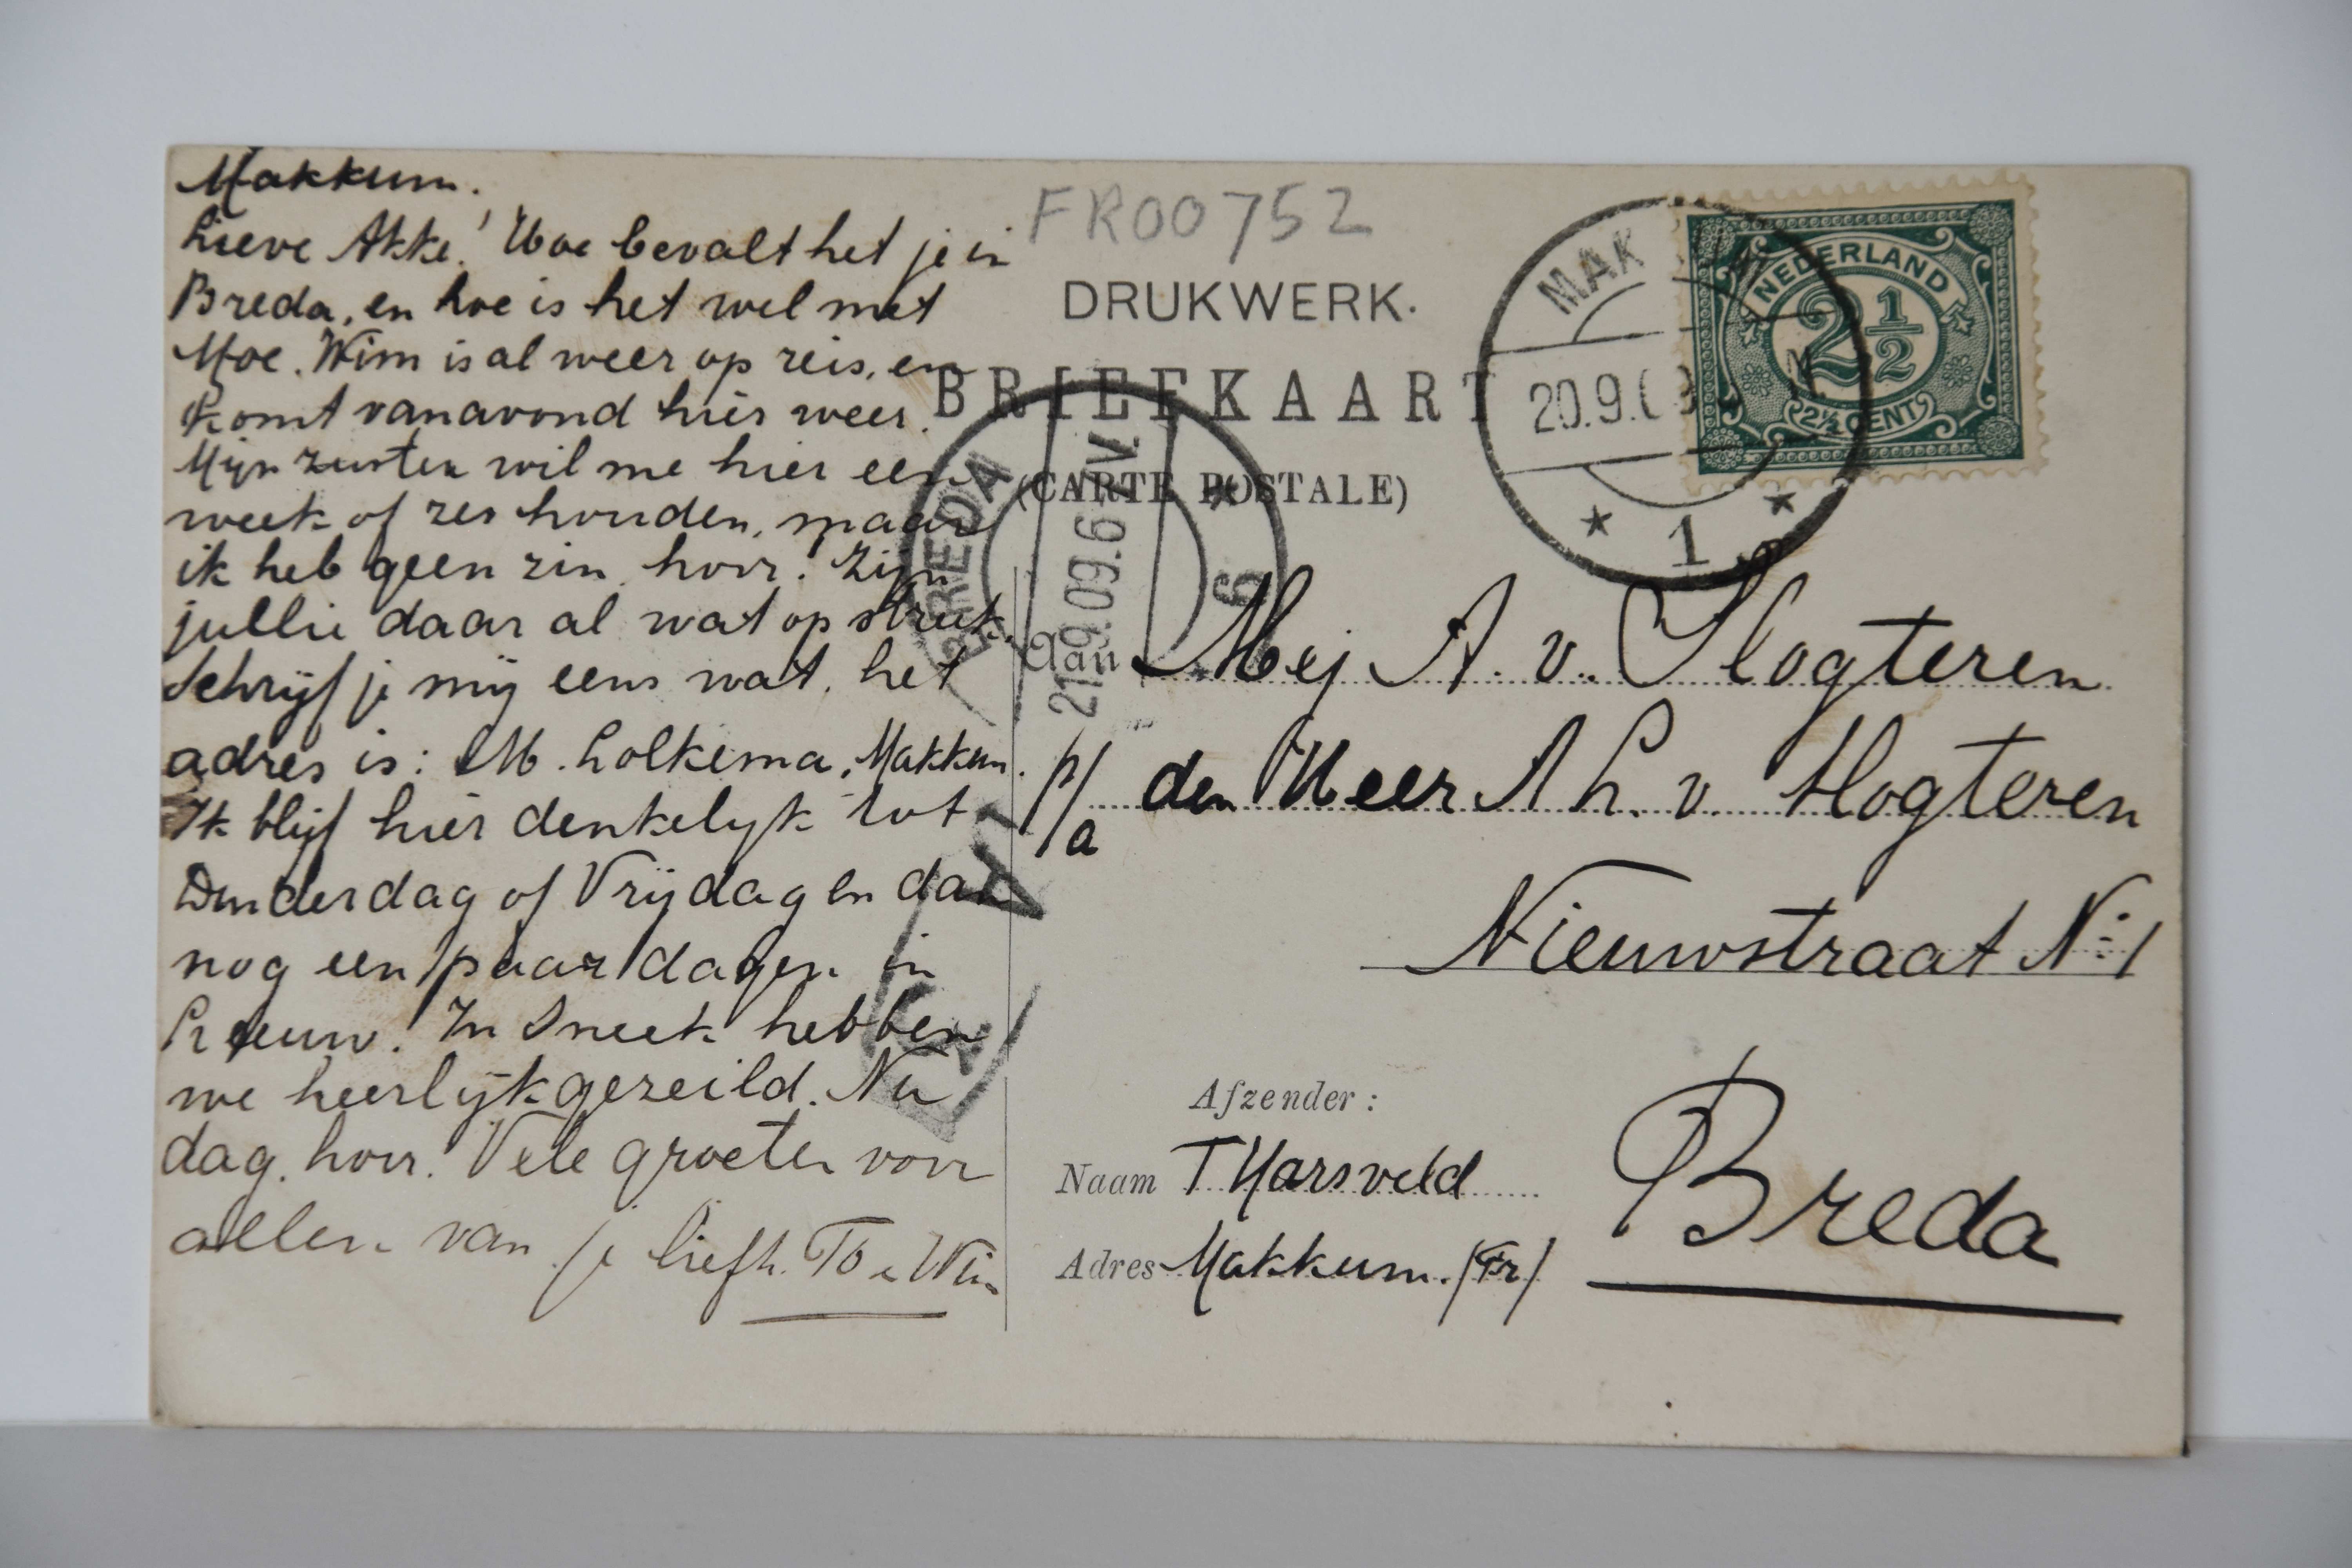 Makkum.
Lieve Akke! Hoe bevalt het je in
Breda, en hoe is het wel met
Moe. Wim is al weer op reis, en
komt vanavond hier weer.
Mijn zuster wil me hier een
week of zes houden, maar
ik heb geen zin hoor! Zijn
jullie daar al wat op streek.
Schrijf je mij eens wat, het
adres is: M. Lolkema, Makkum.
Ik blijf hier denkelijk tot
Donderdag of Vrijdag en dan
nog een paar dagen in
Leeuw. In Sneek hebben
we heerlijk gezeild. Nu
dag. hoor. Vele groeten voor
allen van je liefh. To e Wim
FR00752
DRUKWERK.
BRIEFKAART
(CARTE POSTALE)
MAK
20.9.0
1
NEDERLAND
2 1/2
2½ CENT
BREDA
21.9.09.6-7V.
6
Aan Mej A. v. Slogteren
p/a den Heer A L. v. Slogteren
Nieuwstraat No 1
Breda
Afzender:
Naam T Harsveld
Adres Makkum. (Fr)